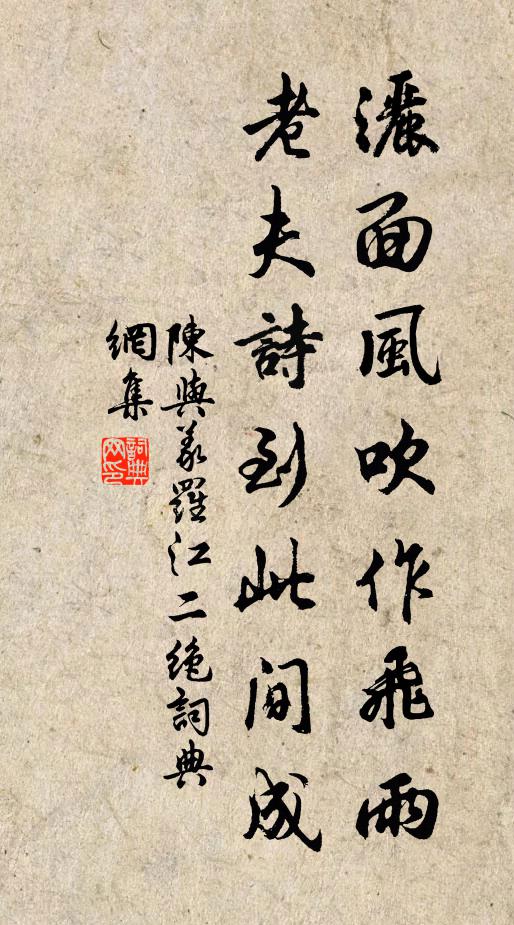 灑面風吹作飛雨
老夫詩到此間成
陳與義羅江二絶詞典
網集
詞典
网印